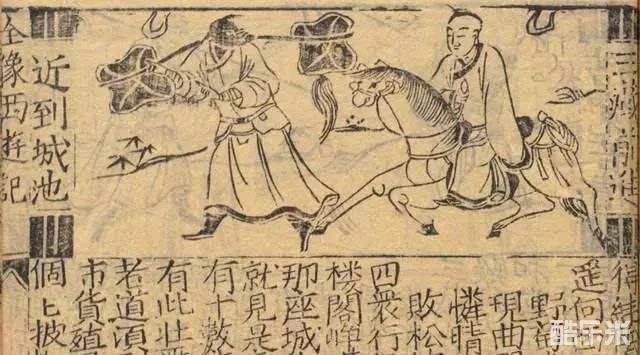 三藏前進
近到城池
全像西遊記
遥向
野
現曲
憐晴
敗松
四衆行
樓閣崢
那座城
就見是
有十數
有此壯
老道湏
市貨殖
個匕披
酷乐米